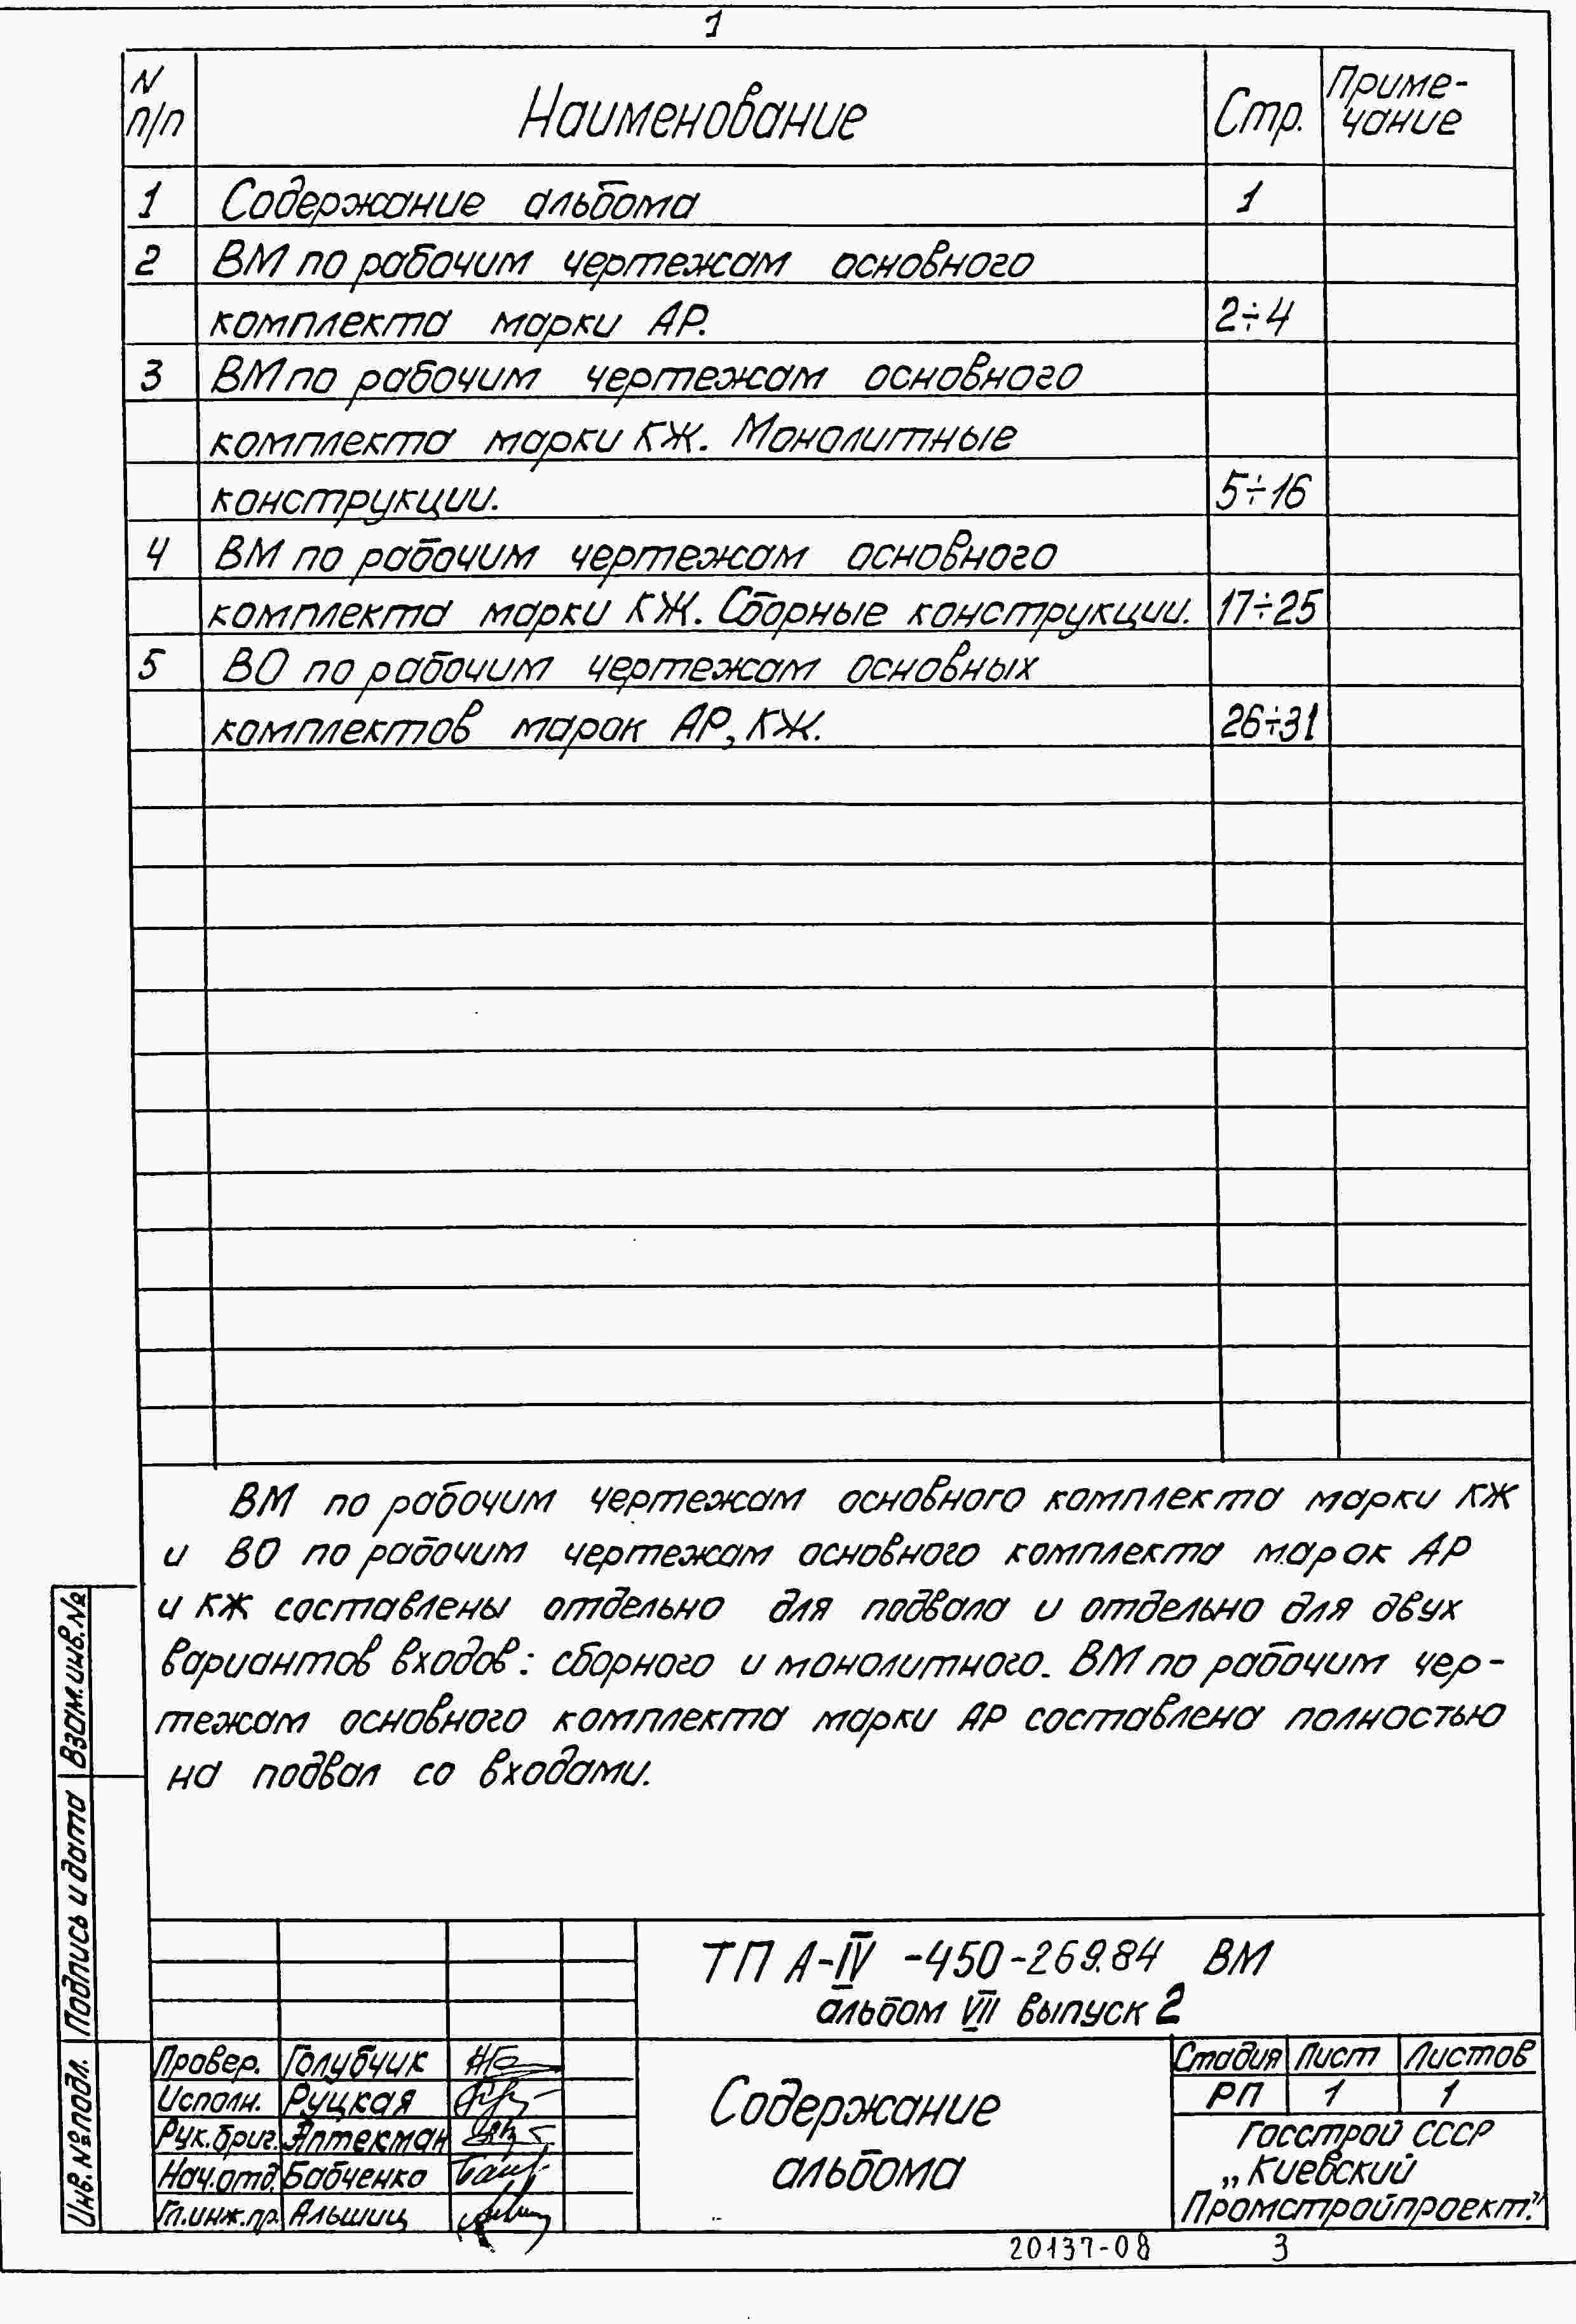 1
N п/п Наименование Стр. Приме-
чание
1 Содержание альбома 1
2 ВМ по рабочим чертежам основного
комплекта марки АР. 2÷4
3 ВМ по рабочим чертежам основного
комплекта марки КЖ. Монолитные
конструкции. 5÷16
4 ВМ по рабочим чертежам основного
комплекта марки КЖ. Сборные конструкции. 17÷25
5 ВО по рабочим чертежам основных
комплектов марок АР, КЖ. 26÷31
ВМ по рабочим чертежам основного комплекта марки КЖ
и ВО по рабочим чертежам основного комплекта марок АР
и КЖ составлены отдельно для подвала и отдельно для двух
вариантов входов: сборного и монолитного. ВМ по рабочим чер-
тежам основного комплекта марки АР составлена полностью
на подвал со входами.
Взам.инв.№
Подпись и дата
Инв.№подл.
ТП А-IV -450-269.84 ВМ
альбом VII выпуск 2
Провер. Голубчик
Исполн. Руцкая
Рук.бриг. Аптекман
Нач.отд. Бабченко
Гл.инж.пр. Альшиц
Содержание
альбома
Стадия Лист Листов
РП 1 1
Госстрой СССР
„Киевский
Промстройпроект."
20137-08 3